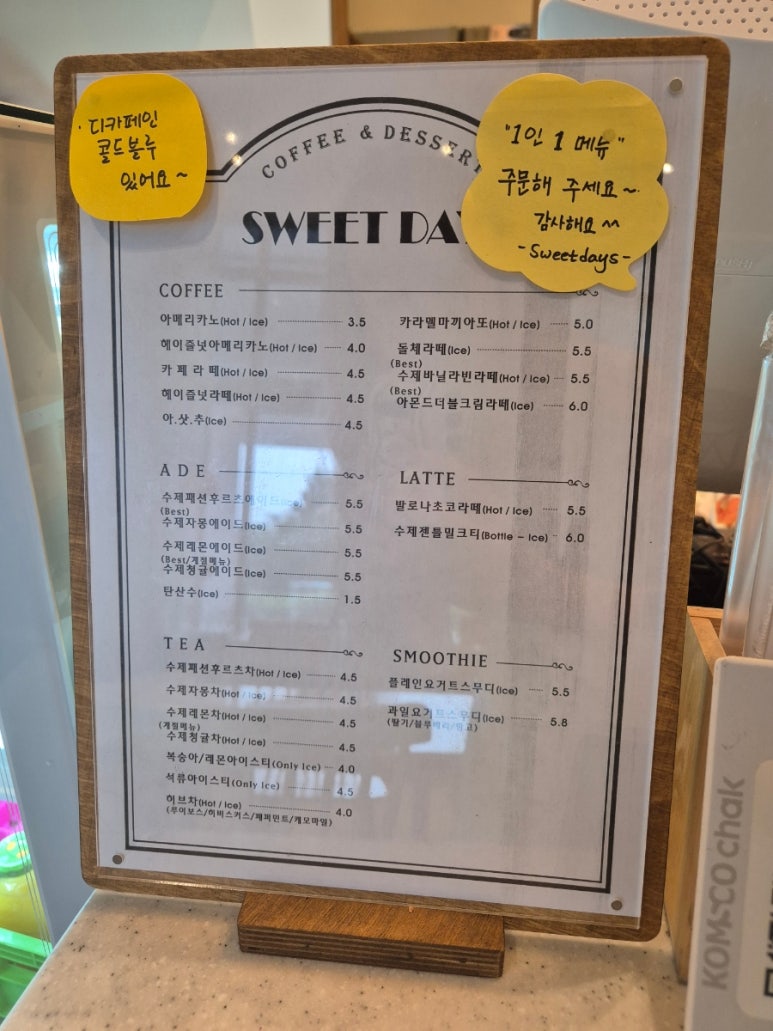 · 디카페인
콜드블루
있어요~
"1인 1 메뉴"
주문해 주세요~
감사해요 ^^
-Sweetdays-
COFFEE & DESSERT
SWEET DAY
COFFEE
아메리카노(Hot / Ice) 3.5
헤이즐넛아메리카노(Hot / Ice) 4.0
카 페 라 떼(Hot / Ice) 4.5
헤이즐넛라떼(Hot / Ice) 4.5
아.샷.추(Ice) 4.5
카라멜마끼아또(Hot / Ice) 5.0
돌체라떼(Ice) 5.5
(Best)
수제바닐라빈라떼(Hot / Ice) 5.5
(Best)
아몬드더블크림라떼(Ice) 6.0
ADE
수제패션후르츠에이드(Ice) 5.5
(Best)
수제자몽에이드(Ice) 5.5
수제레몬에이드(Ice) 5.5
(Best/계절메뉴)
수제청귤에이드(Ice) 5.5
탄산수(Ice) 1.5
LATTE
발로나초코라떼(Hot / Ice) 5.5
수제젠틀밀크티(Bottle - Ice) 6.0
TEA
수제패션후르츠차(Hot / Ice) 4.5
수제자몽차(Hot / Ice) 4.5
수제레몬차(Hot / Ice) 4.5
(계절메뉴)
수제청귤차(Hot / Ice) 4.5
복숭아/레몬아이스티(Only Ice) 4.0
석류아이스티(Only Ice) 4.5
허브차(Hot / Ice) 4.0
(루이보스/히비스커스/페퍼민트/캐모마일)
SMOOTHIE
플레인요거트스무디(Ice) 5.5
과일요거트스무디(Ice) 5.8
(딸기/블루베리/망고)
KOMSCO chak